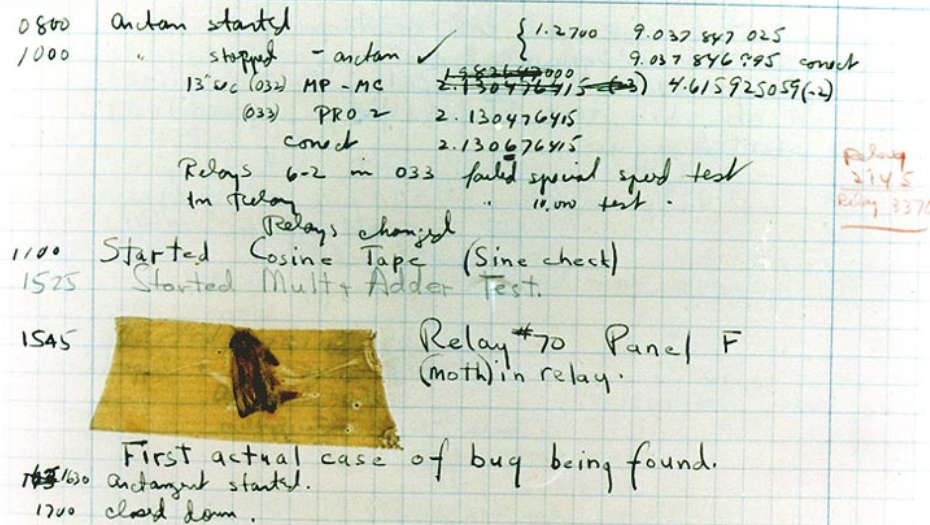 0800 arctan started { 1.2700 9.037 847 025
1000 " stopped - arctan ✓ 9.037 846 995 correct
13" sec (032) MP - MC 2.130476415 (-3) 4.615925059(-2)
(033) PRO 2 2.130476415
correct 2.130676415
Relays 6-2 in 033 failed special speed test
In Relay " 10,000 test .
Relays changed
Relay
2145
Relay 3370
1100 Started Cosine Tape (Sine check)
1525 Started Mult + Adder Test.
1545 Relay #70 Panel F
(moth) in relay.
First actual case of bug being found.
1630 arctangent started.
1700 closed down.